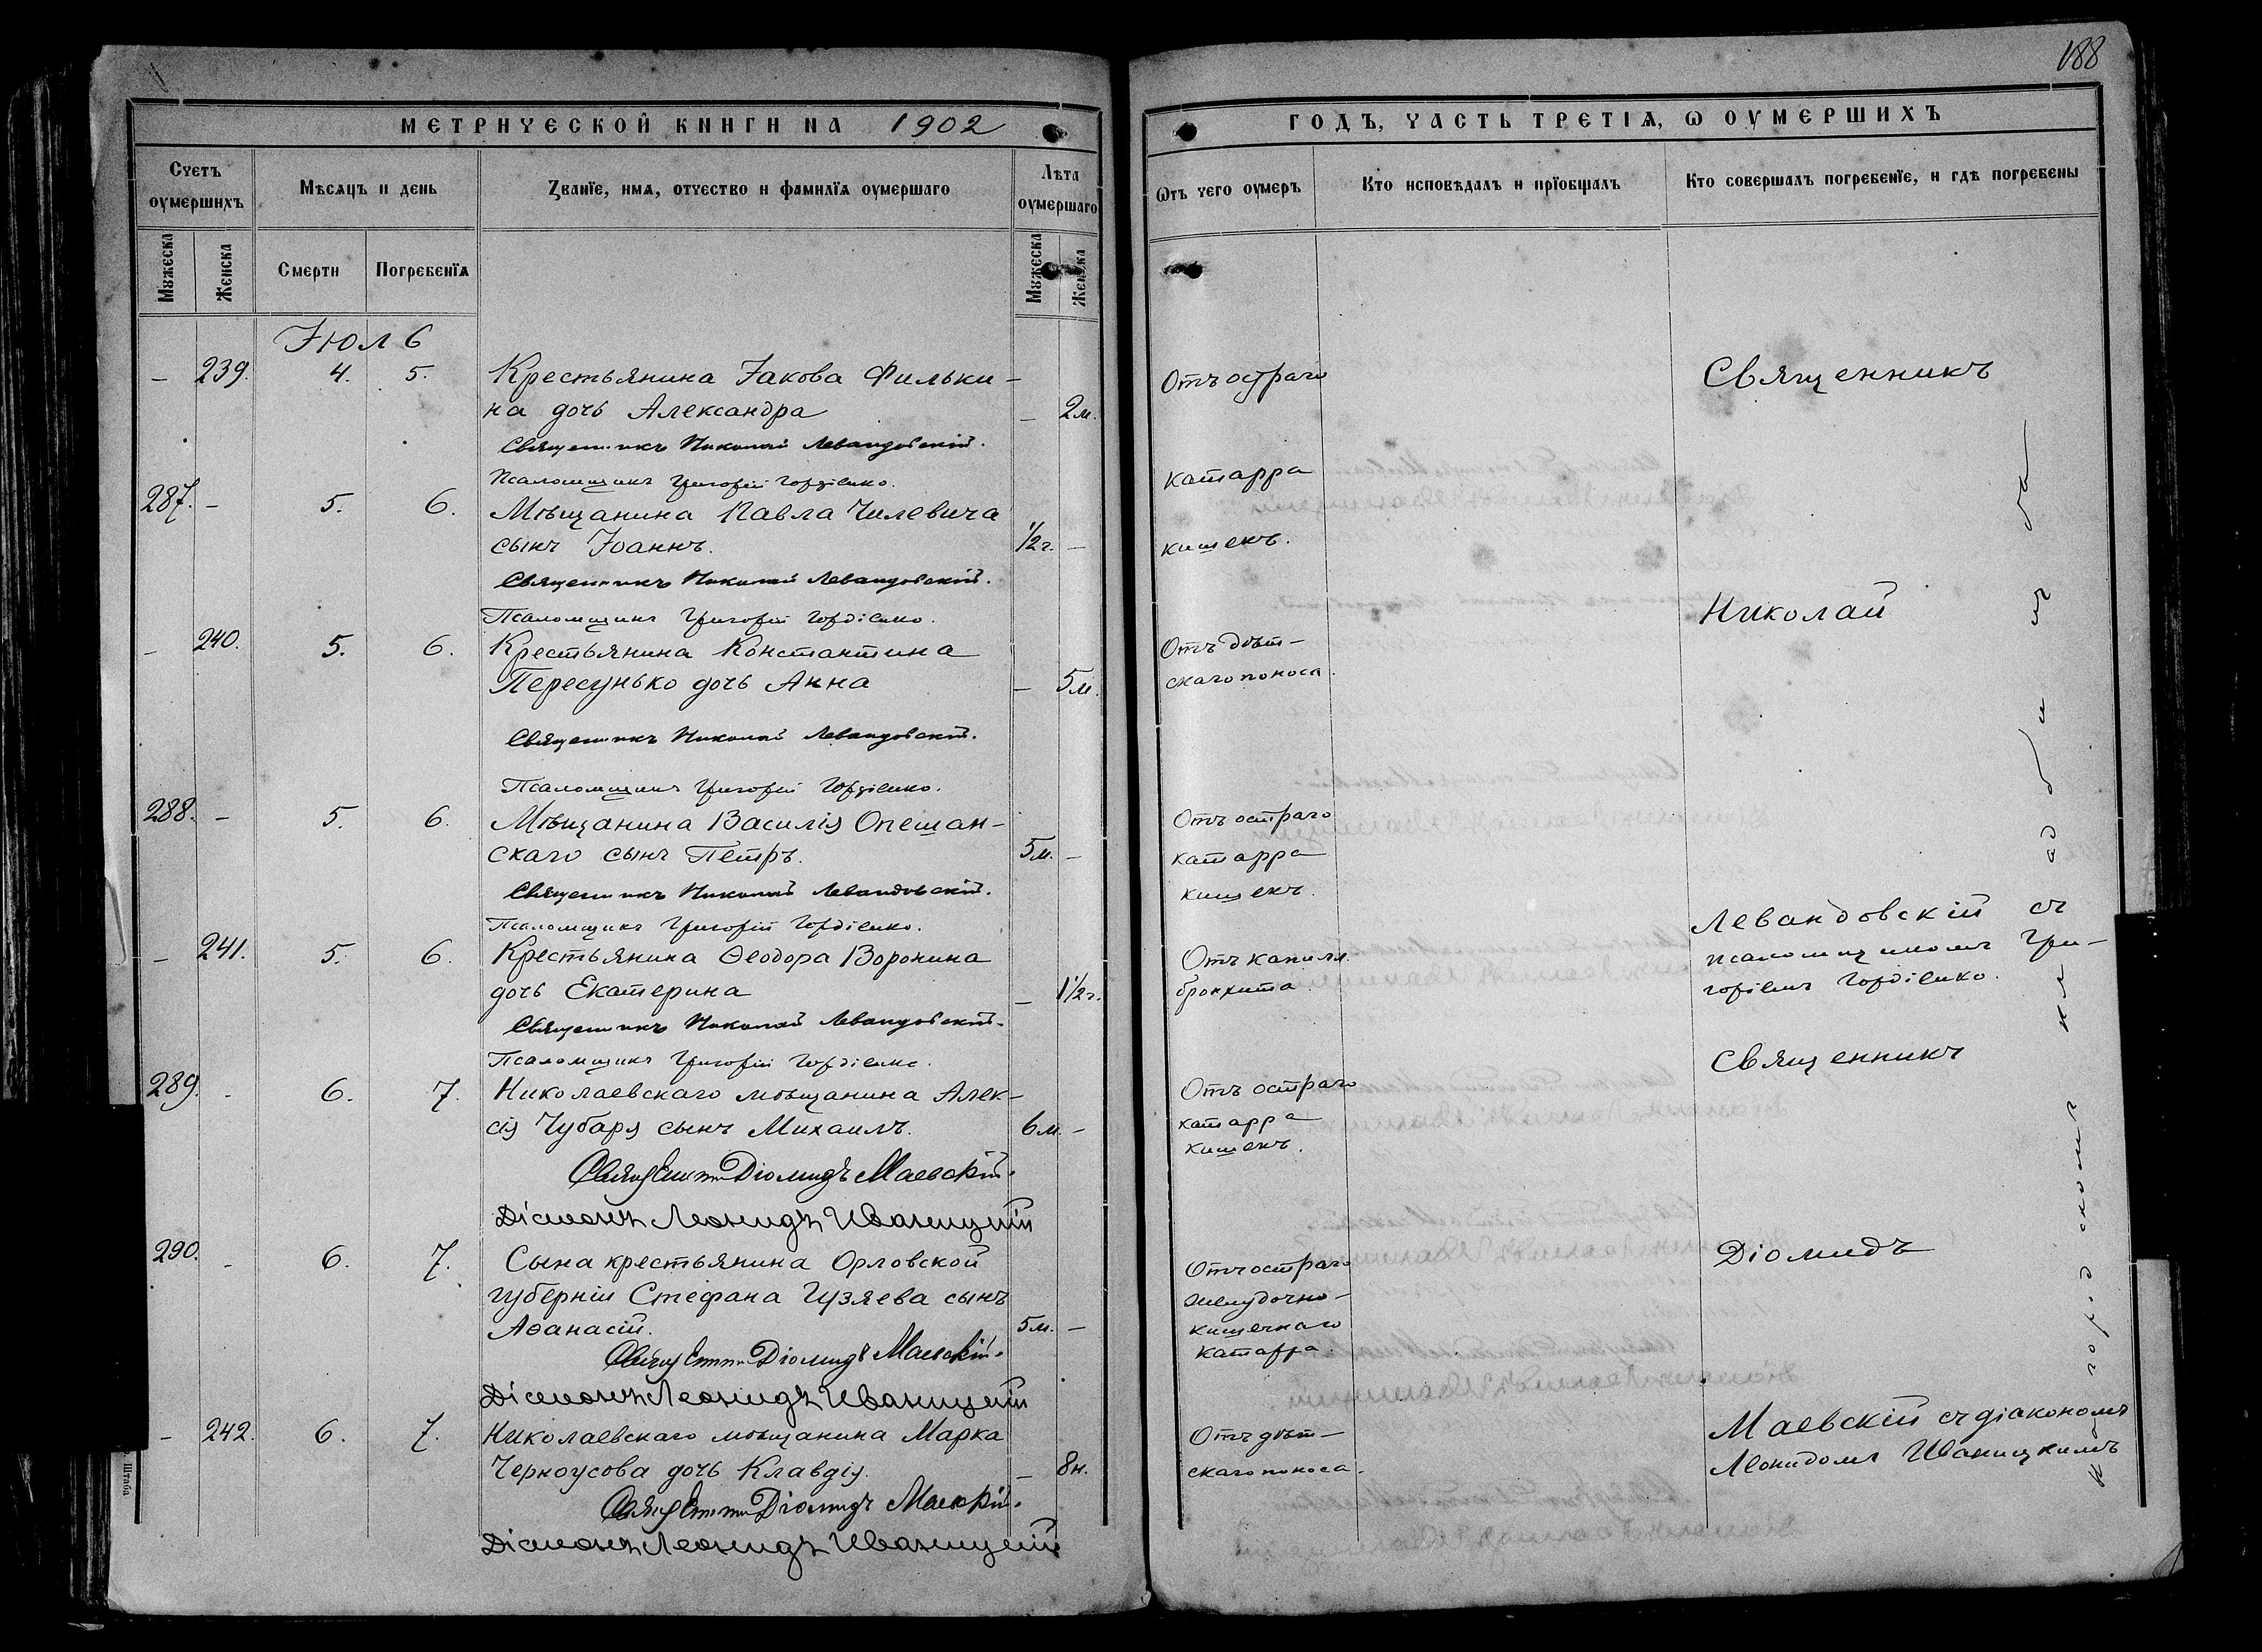 188
МЕТРИЧЕСКОЙ КНИГИ НА 1902
ГОДЪ, ЧАСТЬ ТРЕТІѦ, Ѡ ОУМЕРШИХЪ
Счетъ оумершихъ
Мѣсяцъ и день
Званїе, имѧ, отчество и фамилїѧ оумершаго
Лѣта оумершаго
Ѿъ чего оумеръ
Кто исповѣдалъ и прїобщалъ
Кто совершалъ погребенїе, и гдѣ погребены
Мужеска
Женска
Смерти
Погребенїѧ
Мужеска
Женска
Іюль
– 239. 4. 5. Крестьянина Іакова Фильки-
на дочь Александра – 2м.
Священникъ Николай Левандовскій.
Псаломщикъ Григорій Гордіенко.
287. – 5. 6. Мѣщанина Павла Чилевича
сынъ Іоаннъ. 1/2 г. –
Священникъ Николай Левандовскій.
Псаломщикъ Григорій Гордіенко.
– 240. 5. 6. Крестьянина Константина
Пересунько дочь Анна – 5м.
Священникъ Николай Левандовскій.
Псаломщикъ Григорій Гордіенко.
288. – 5. 6. Мѣщанина Василія Опешан-
скаго сынъ Петръ. 5м. –
Священникъ Николай Левандовскій.
Псаломщикъ Григорій Гордіенко.
– 241. 5. 6. Крестьянина Ѳеодора Воронина
дочь Екатерина – 1 1/2 г.
Священникъ Николай Левандовскій.
Псаломщикъ Григорій Гордіенко.
289. – 6. 7. Николаевскаго мѣщанина Алек-
сія Чубаря сынъ Михаилъ. 6м. –
Священникъ Діомидъ Маевскій.
Діаконъ Леонидъ Иваницкій
290. – 6. 7. Сына крестьянина Орловской
губерніи Стефана Гузяева сынъ
Аѳанасій. 5м. –
Священникъ Діомидъ Маевскій.
Діаконъ Леонидъ Иваницкій
– 242. 6. 7. Николаевскаго мѣщанина Марка
Черноусова дочь Клавдія. – 8н.
Священникъ Діомидъ Маевскій.
Діаконъ Леонидъ Иваницкій
Отъ остраго
катарра
кишекъ.
Отъ дѣт-
скаго поноса.
Отъ остраго
катарра
кишекъ.
Отъ капилл.
бронхита.
Отъ остраго
катарра
кишекъ.
Отъ остраго
желудочно-
кишечнаго
катарра.
Отъ дѣт-
скаго поноса.
Священникъ
Николай
Левандовскій съ
псаломщикомъ Гри-
горіемъ Гордіенко.
Священникъ
Діомидъ
Маевскій съ діакономъ
Леонидомъ Иваницкимъ
на городскомъ кладбищѣ